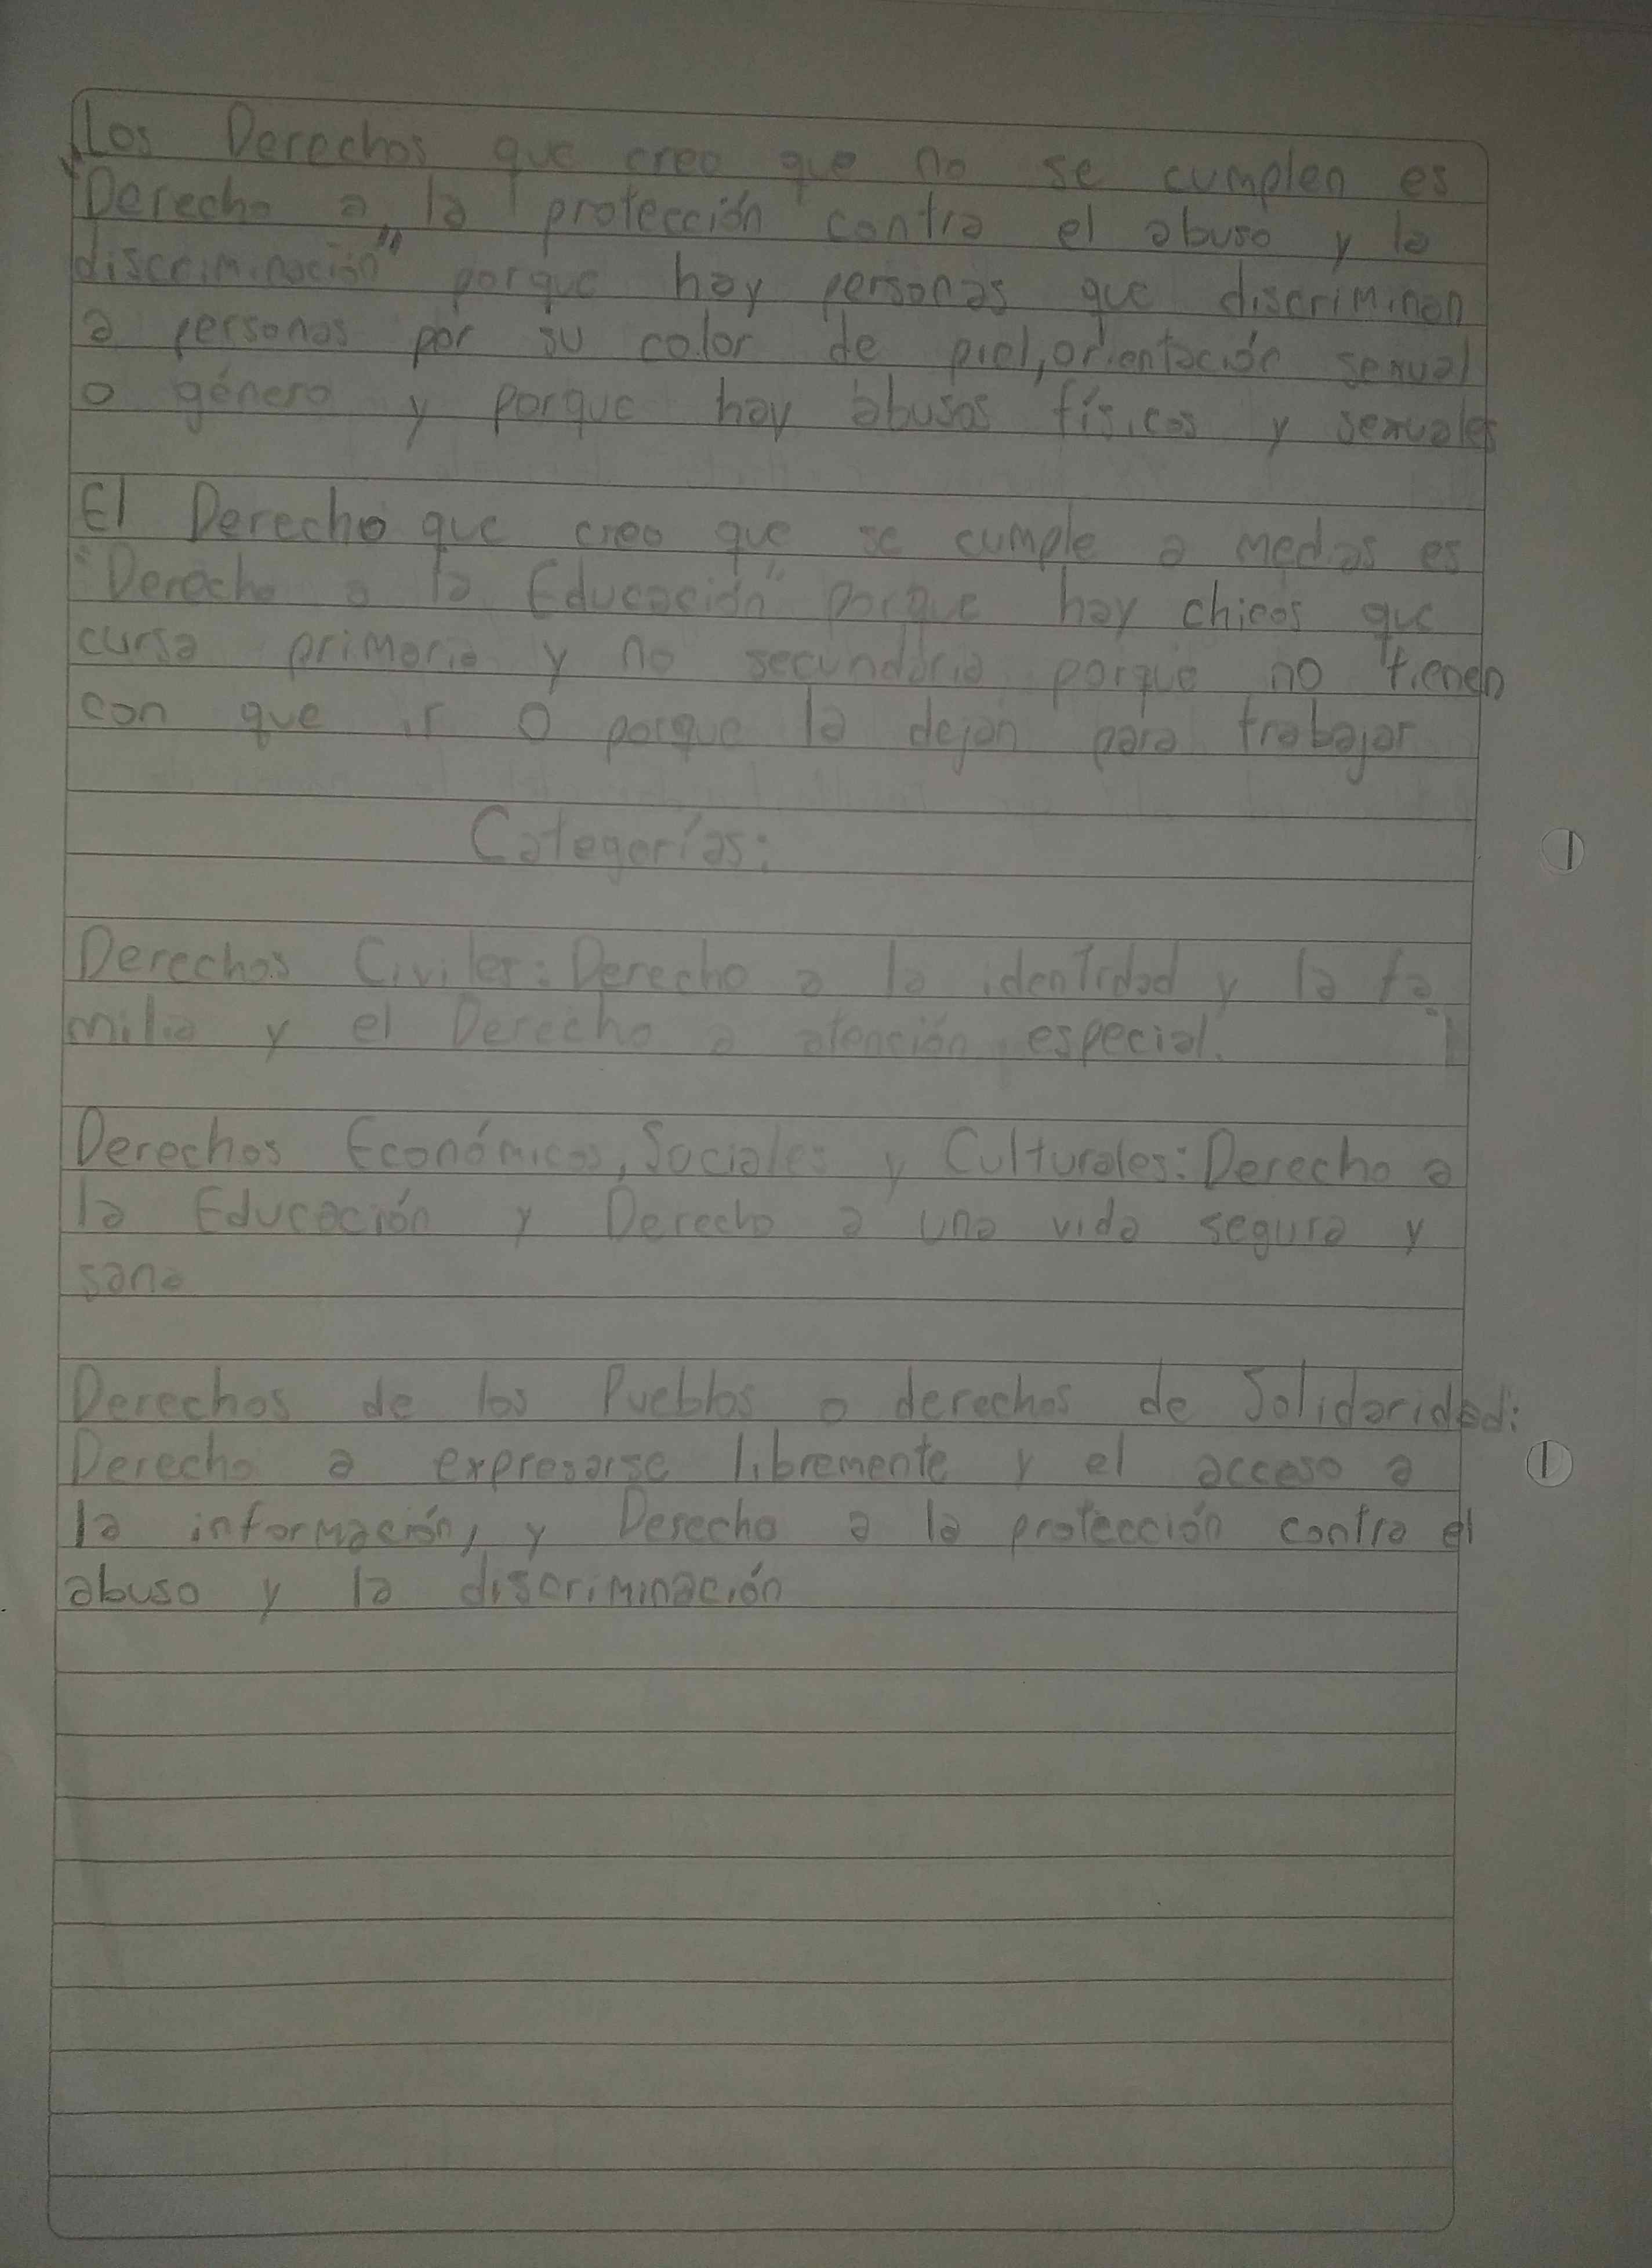 Los Derechos que creo que no se cumplen es
"Derecho a la protección contra el abuso y la
discriminación" porque hay personas que discriminan
a personas por su color de piel, orientación sexual
o género y porque hay abusos físicos y sexuales
El Derecho que creo que se cumple a medias es
"Derecho a la Educación" porque hay chicos que
cursa primaria y no secundaria porque no tienen
con que ir o porque la dejan para trabajar
Categorías:
Derechos Civiles: Derecho a la identidad y la fa
milia y el Derecho a atención especial.
Derechos Económicos, Sociales y Culturales: Derecho a
la Educación y Derecho a una vida segura y
sana
Derechos de los Pueblos o derechos de Solidaridad:
Derecho a expresarse libremente y el acceso a
la información, y Derecho a la protección contra el
abuso y la discriminación